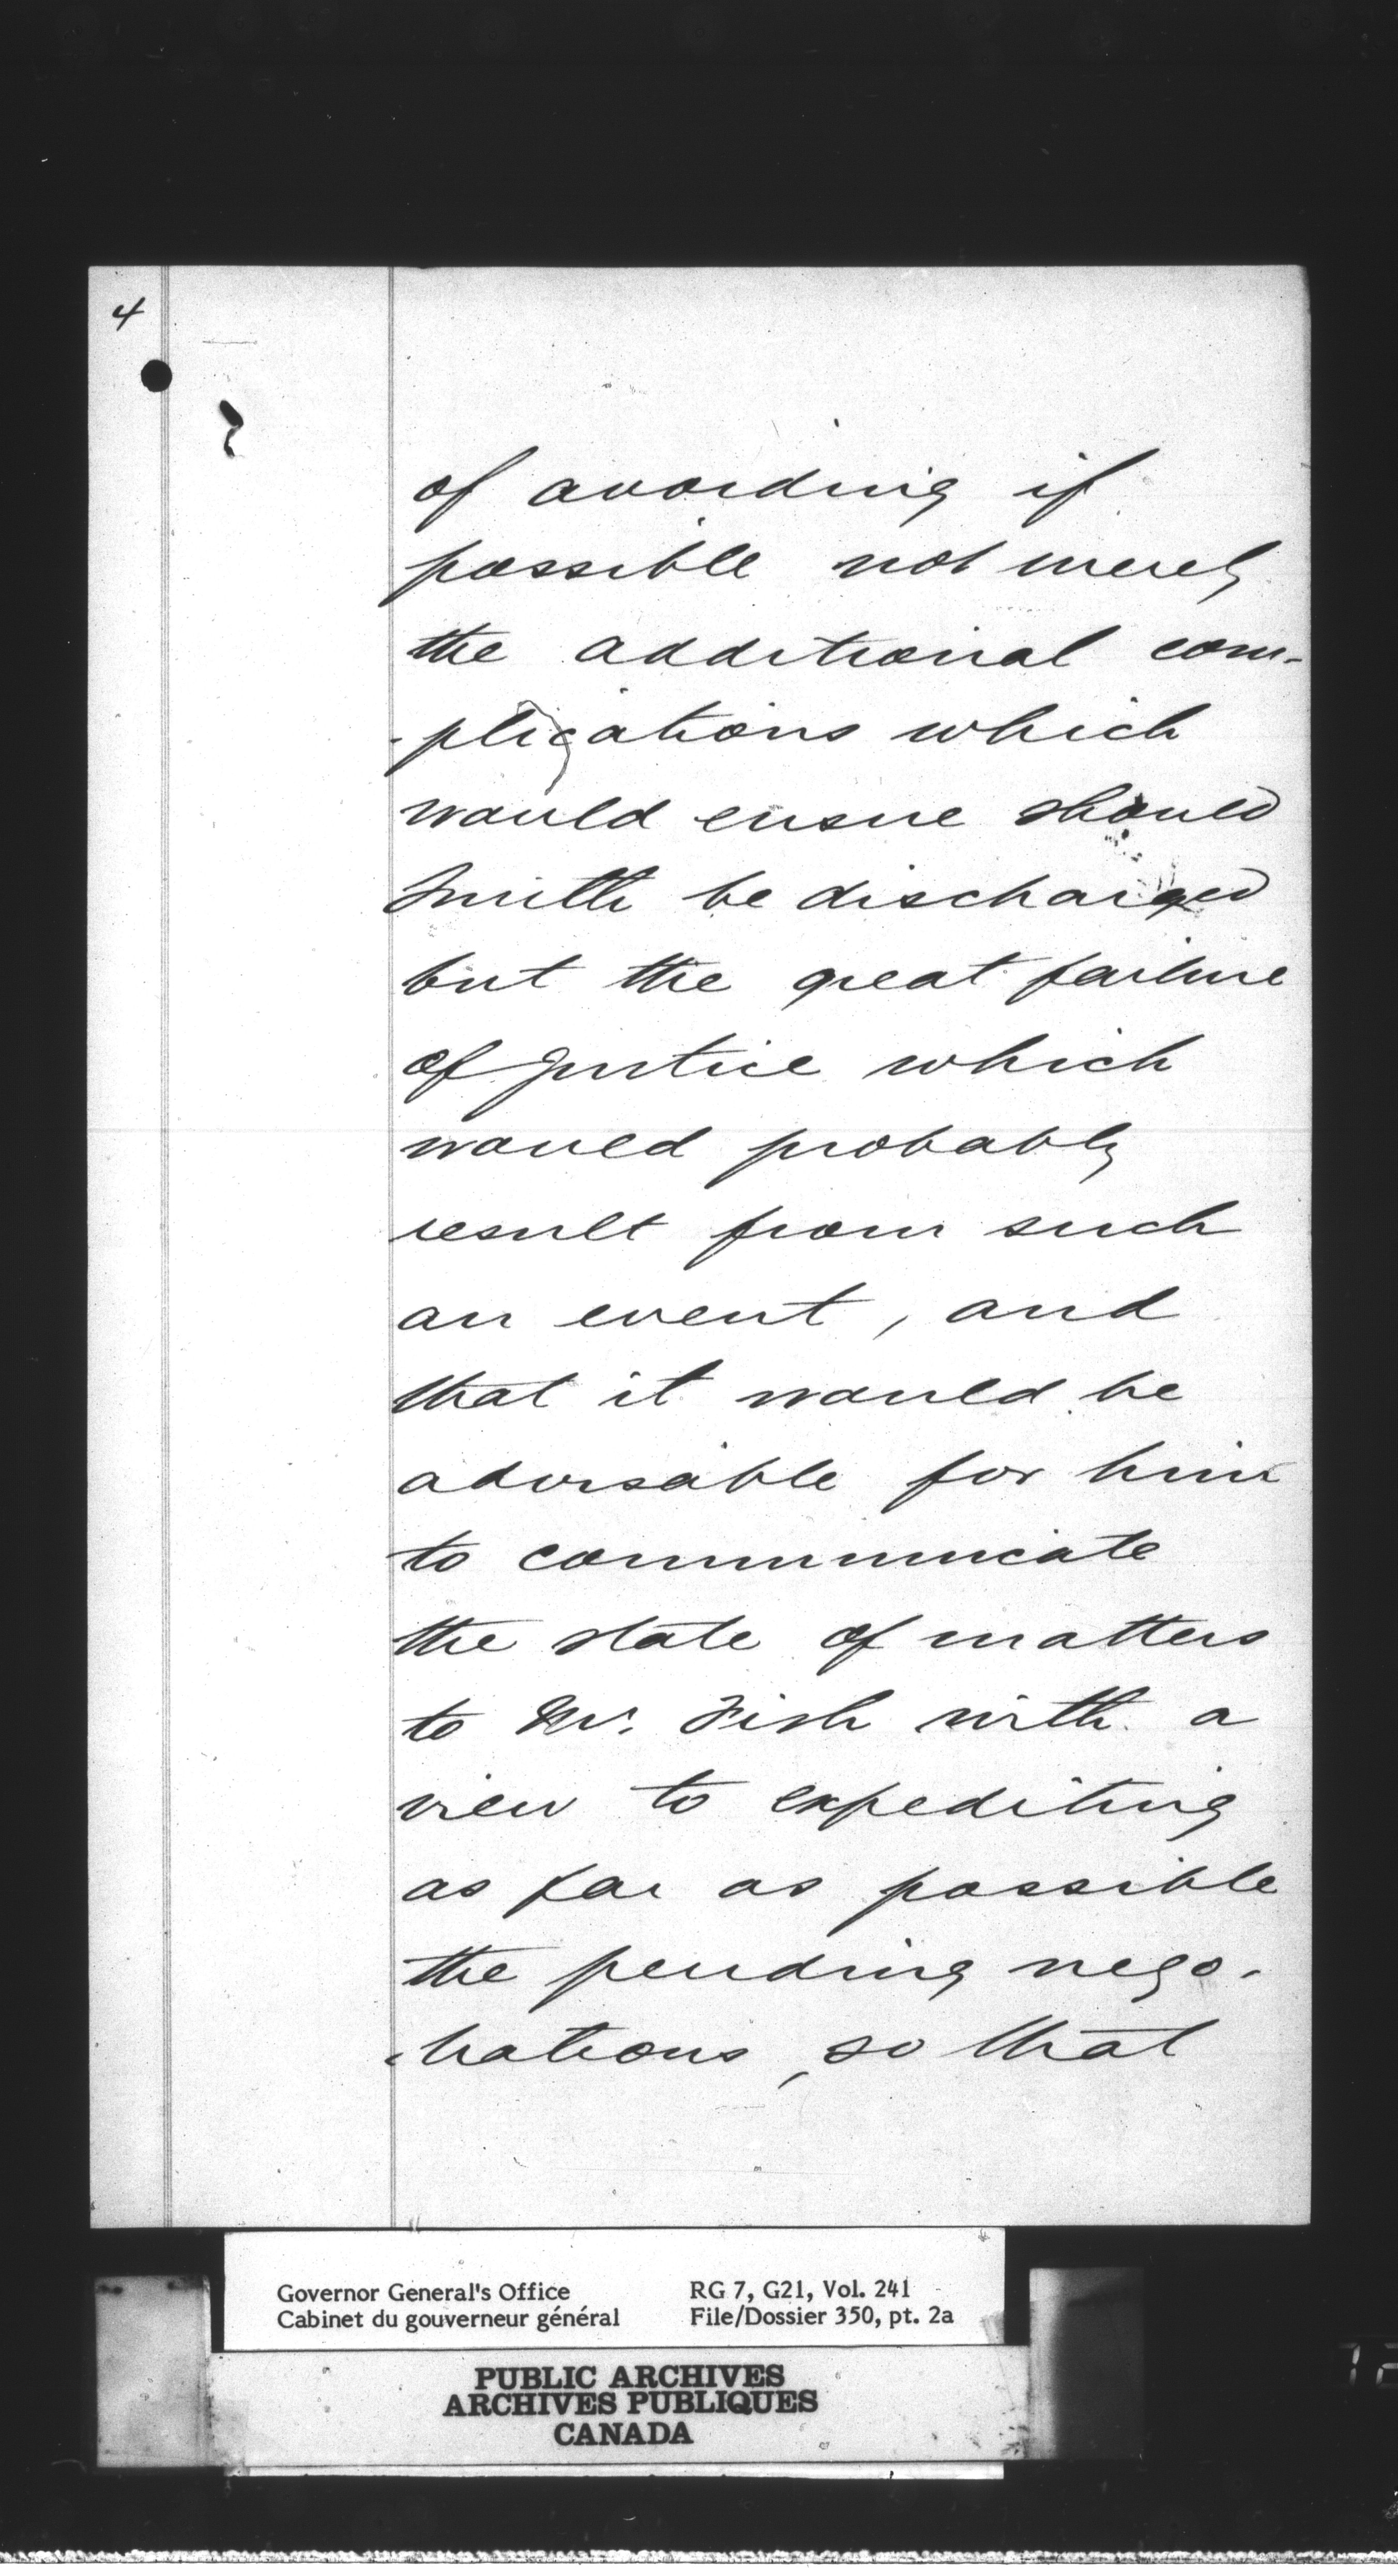 4
of avoiding if
possible not merely
the additional com-
-plications which
would ensue should
Smith be discharged
but the great failure
of Justice which
would probably
result from such
an event, and
that it would be
advisable for him
to communicate
the state of matters
to Mr. Fish with a
view to expediting
as far as possible
the pending nego-
-tiations, so that
Governor General's Office RG 7, G21, Vol. 241
Cabinet du gouverneur général File/Dossier 350, pt. 2a
PUBLIC ARCHIVES
ARCHIVES PUBLIQUES
CANADA